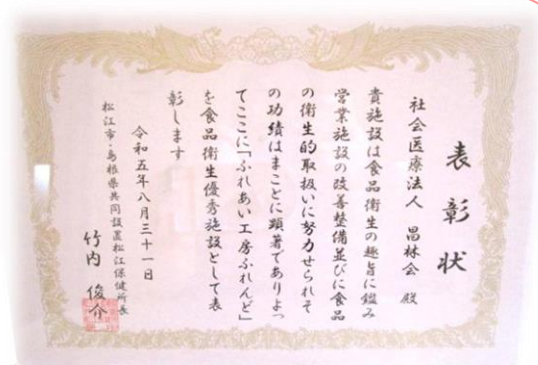 表彰状
社会医療法人 昌林会 殿
貴施設は食品衛生の趣旨に鑑み
営業施設の改善整備並びに食品
の衛生的取扱いに努力せられそ
の功績はまことに顕著でありよっ
てここに「ふれあい工房ふれんど」
を食品衛生優秀施設として表
彰します
令和五年八月三十一日
松江市・島根県共同設置松江保健所長
竹内 俊介